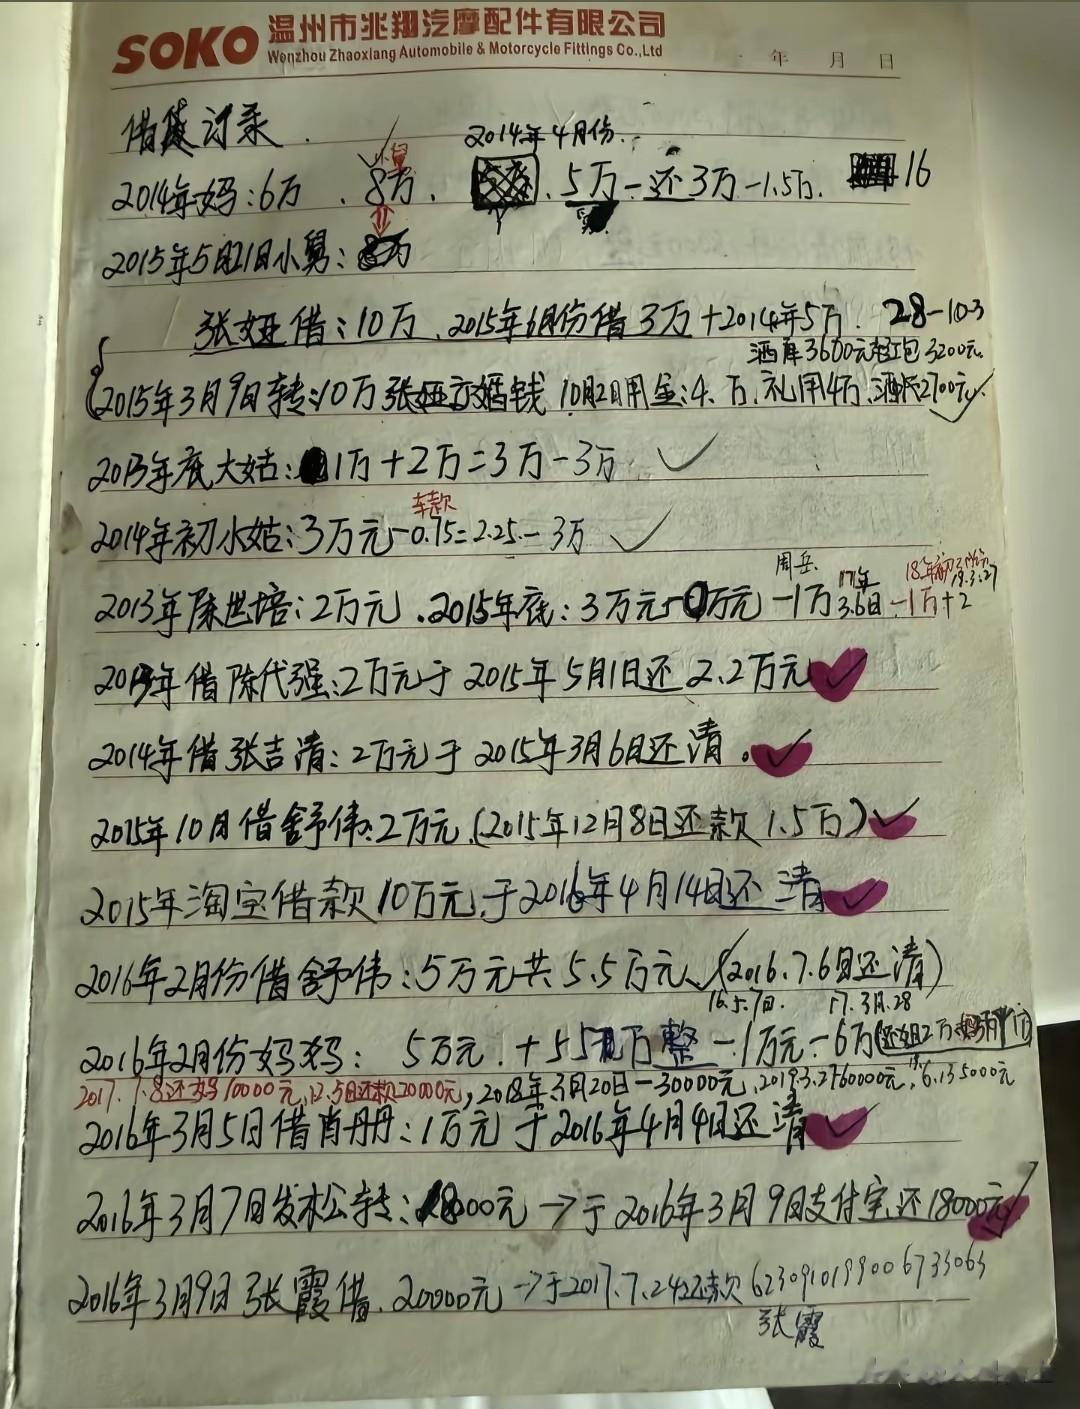 SOKO 温州市兆翔汽摩配件有限公司
Wenzhou Zhaoxiang Automobile & Motorcycle Fittings Co.,Ltd
年 月 日
借贷记录
2014年4月份
小舅
2014年妈:6万 . 8万 . 5万-还3万-1.5万. 16
2015年5月21日小舅:8万
张娅借:10万.2015年6月份借3万+2014年5万. 28-10-3
酒席3600元 红包3200元
2015年3月9日转:10万张娅交婚钱 10月2日用金:4.万.礼用4万.酒席2700元
2013年底大姑:1万+2万=3万-3万
车款
2014年初小姑:3万元-0.75=2.25-3万
周岳 17年 18年 19.3.27
2013年陈世培:2万元.2015年底:3万元-0万元-1万 3.6日-1万+2
2013年借陈代强:2万元于2015年5月1日还2.2万元
2014年借张吉清:2万元于2015年3月6日还清。
2015年10月借舒伟:2万元(2015年12月8日还款1.5万)
2015年淘宝借款10万元于2016年4月14日还清
2016年2月份借舒伟:5万元共5.5万元(2016.7.6日还清)
16.5.7日. 17.3月.28
2016年2月份妈妈: 5万元.+5万整-1万元-6万
2017.7.8还妈10000元,12.5日还款20000元,2018年3月20日-30000元,2019.3.27 60000元, 6.13 5000元
2016年3月5日借肖丹丹:1万元于2016年4月4日还清
2016年3月7日发松公转:18000元→于2016年3月9日支付宝还18000元
2016年3月9日张霞借.20000元→于2017.7.24还款 6230910199006733063
张霞